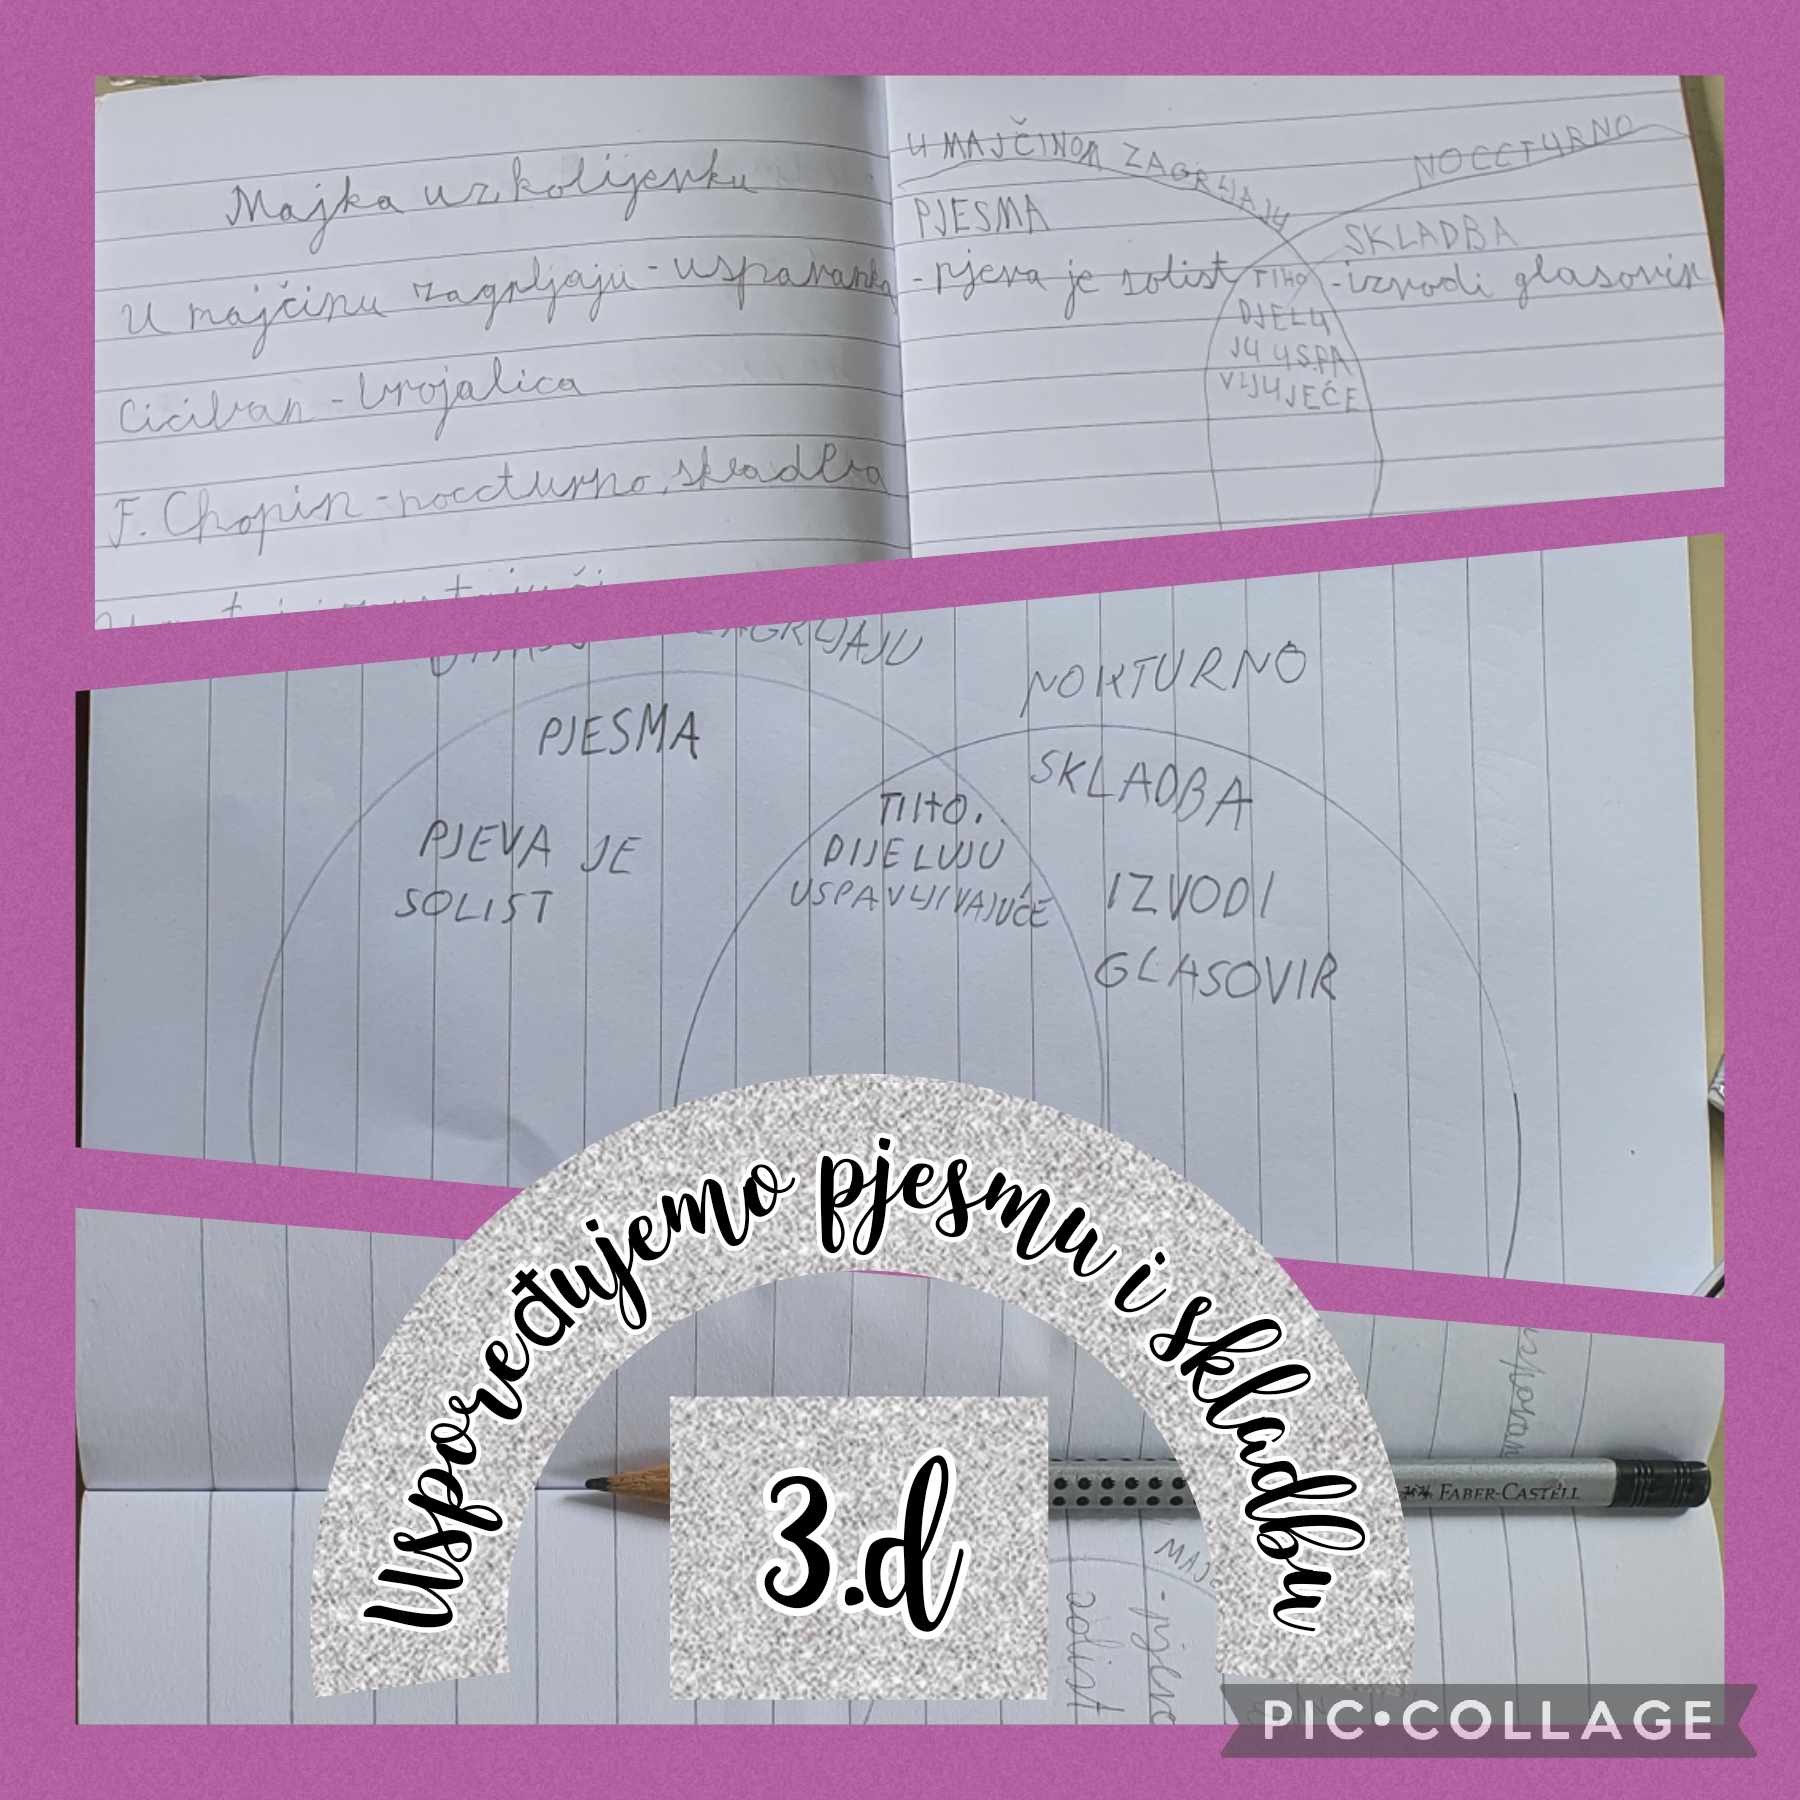 Majka uz kolijevku
U majčinu zagrljaju - uspavanka
Ciciban - brojalica
F. Chopin - noccturno, skladba
U MAJČINOM ZAGRLJAJU
NOCCTURNO
PJESMA
SKLADBA
- pjeva je solist
TIHO
- izvodi glasovir
DJELU
JU USPA
VLJUJEĆE
ZAGRLJAJU
NOKTURNO
PJESMA
SKLADBA
PJEVA JE
SOLIST
TIHO.
DIJELUJU
USPAVLJIVAJUĆE
IZVODI
GLASOVIR
Uspoređujemo pjesmu i skladbu
3.d
FABER-CASTELL
solist
PIC•COLLAGE